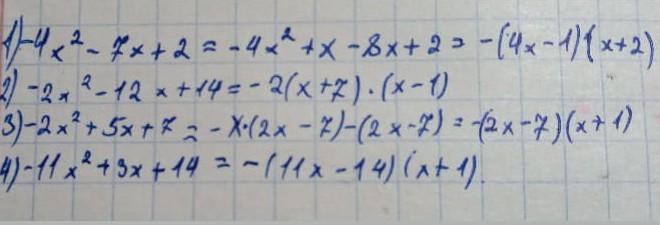 1) -4x² - 7x + 2 = -4x² + x - 8x + 2 = -(4x - 1)(x + 2)
2) -2x² - 12x + 14 = -2(x + 7) · (x - 1)
3) -2x² + 5x + 7 = -x·(2x - 7) - (2x - 7) = -(2x - 7)(x + 1)
4) -11x² + 3x + 14 = -(11x - 14)(x + 1).